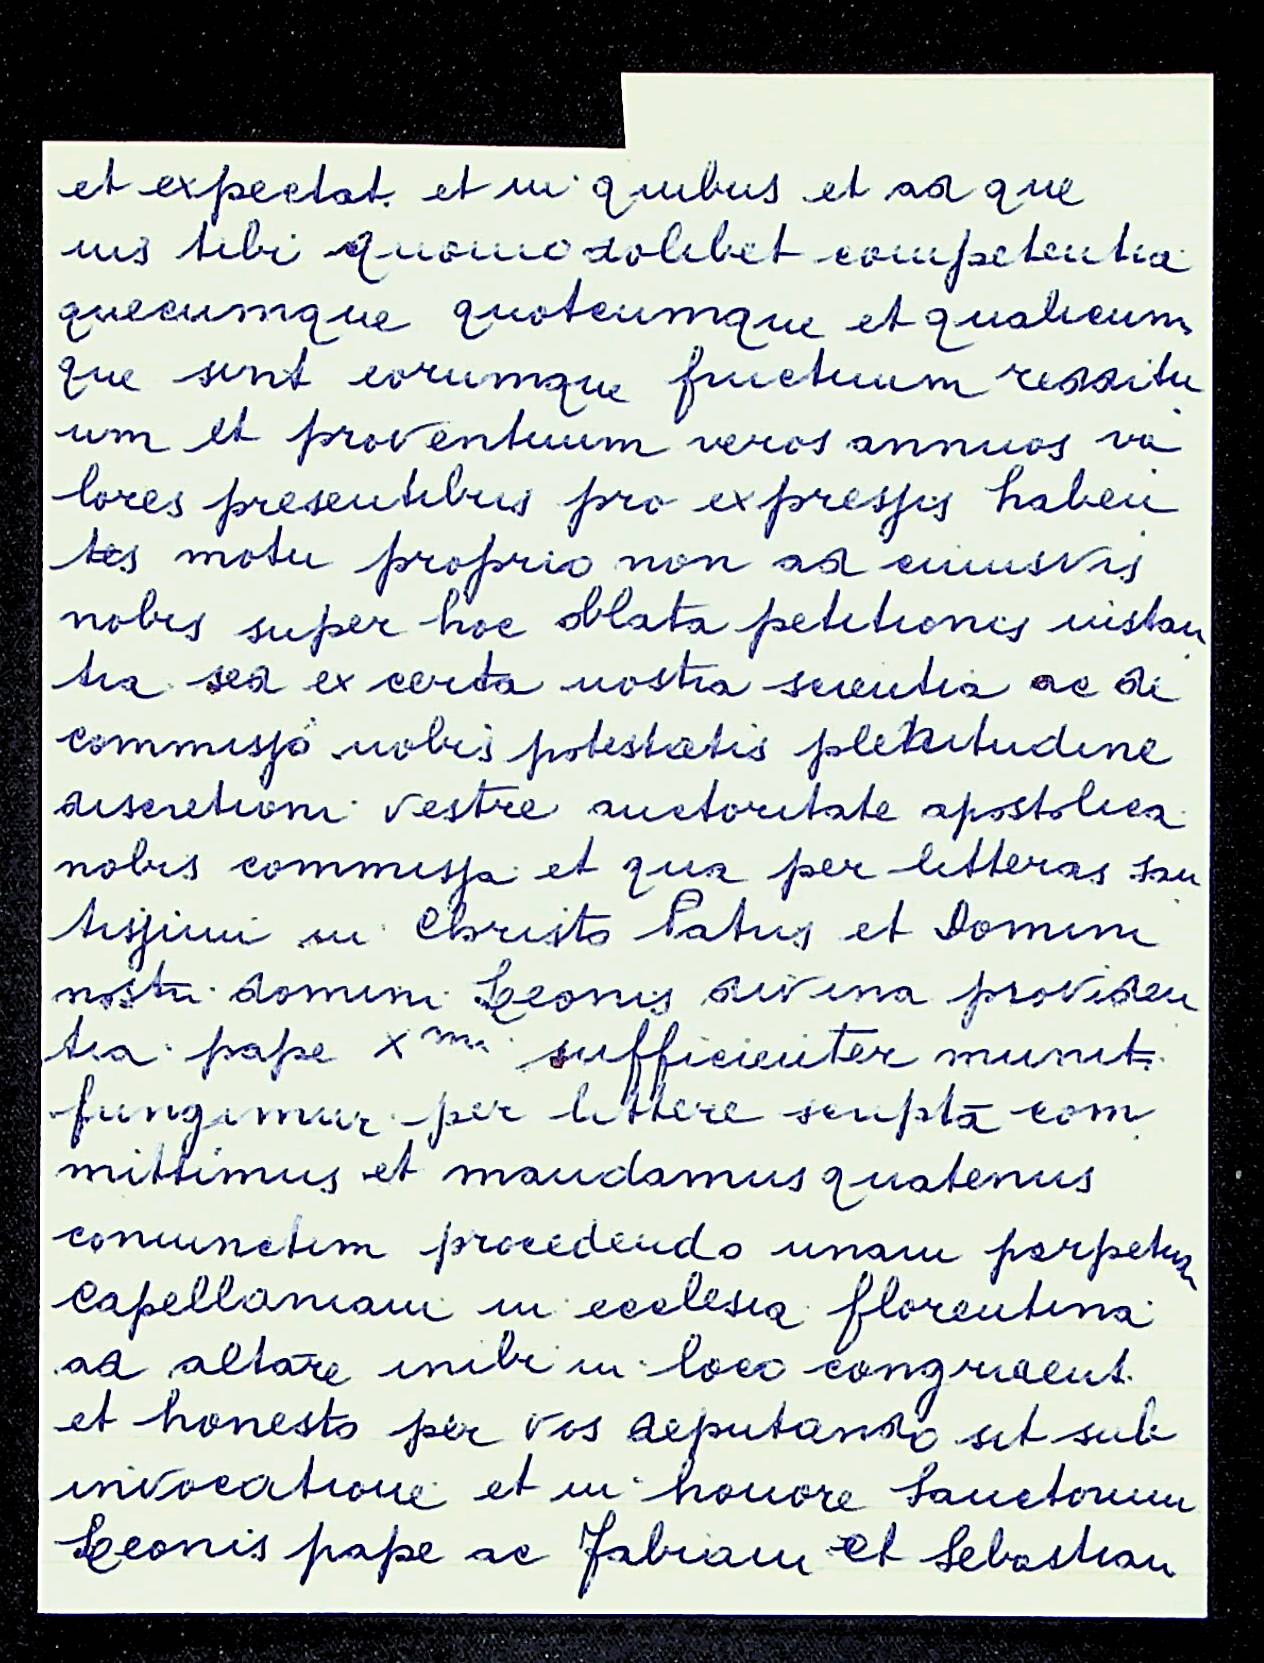 et expectat. et in quibus et ad que
ius tibi quomodolibet competentia
quecumque quotcumque et qualicum
que sint eorumque fructuum reddittu
um et proventuum veros annuos va
lores presentibus pro expressis haben
tes motu proprio non ad cuiusvis
nobis super hoc oblata petitionis instan
tia sed ex certa nostra scientia ac di
commissa nobis potestatis plenitudine
discretioni vestre auctoritate apostolica
nobis commissa et qua per litteras san
tissimi in Christo Patris et Domini
nostri domini Leonis divina providen
tia pape Xmi sufficienter munit.
fungimur per littere scripta com
mittimus et mandamus quatenus
coniunctim procedendo unam perpetua
Capellaniam in ecclesia florentina
ad altare inibi in loco congruent.
et honesto per vos deputando sit sub
invocatione et in honore Sanctorum
Leonis pape ac Fabiani et Sebastian